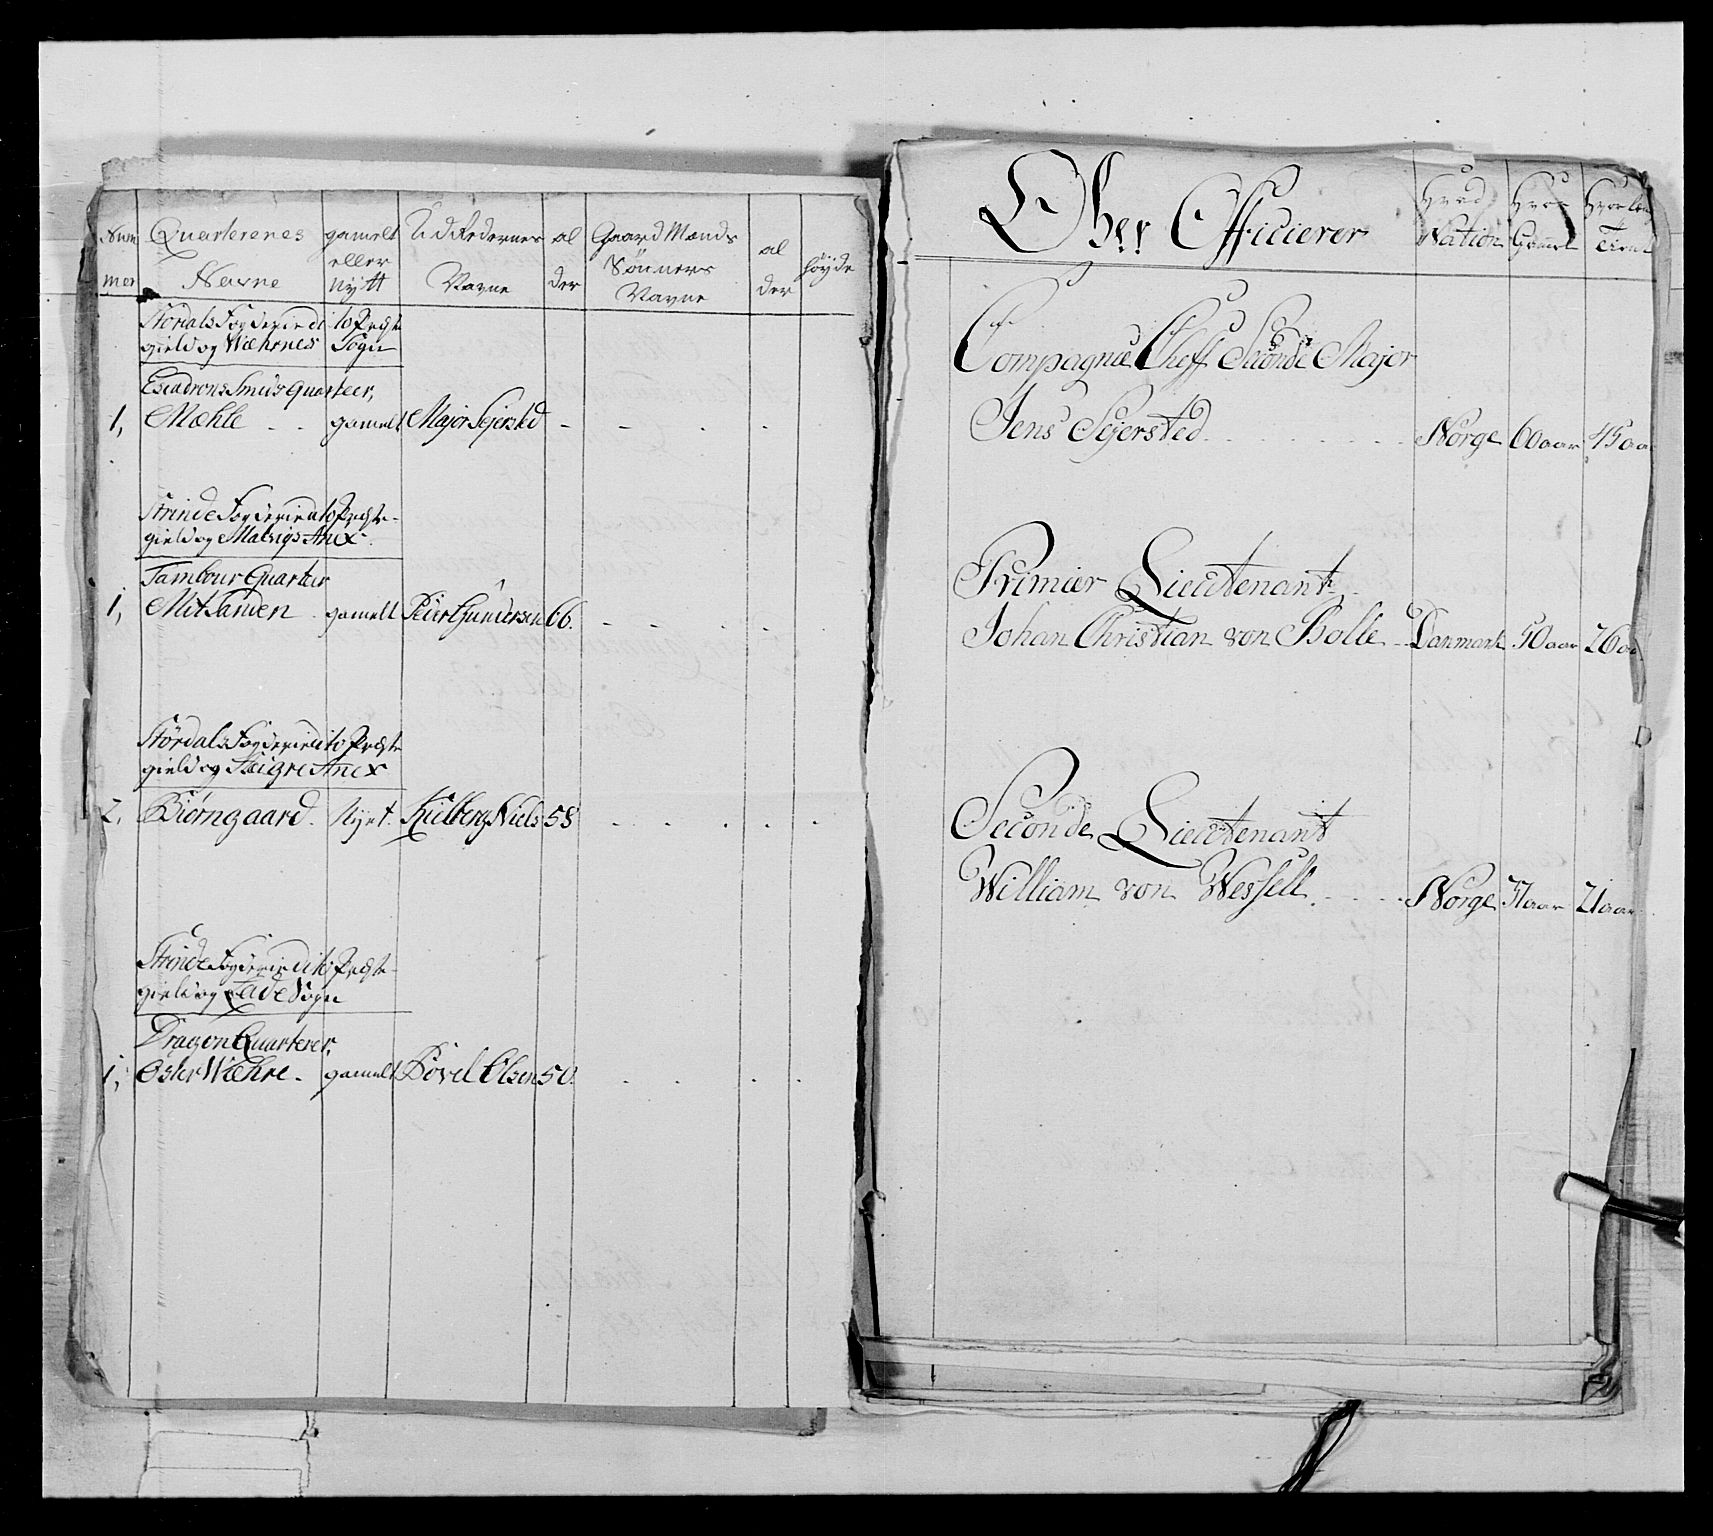 Num
mer
Quarterenes
Navne
gamelt
eller
nytt
Udredernes
Navne
al
der
Gaard Mænds
Sönners
Navne
al
der
höyde
Störals Fogderie dito Præste
gield og Wæhrnes Sogn
Escadrons Smus Quarteer,
1, Mæhle - - gamelt Major Sejersted - - . . .
Strinde Fogderie dito Præste-
gield og Malvigs Anex
Tambour Quarter
1, Mitsanden - gamelt Peder Gundersen 66. - - - . .
Stördals Fogderie dito Præste
gield og Anex
2, Biörngaard. Nyet. Kielberg Niels 58 . . . . .
Strinde Fogderie dito Præste-
gield og Lade Sogn
Dragon Quarterer,
1, Öster Wæhre - gamelt Olsen 50. . . . .
Ober Officierer
Hvad
Nation
Hvor
Gamel
Hvorlæng
Tient
Compagnie Cheff Seconde Major
Jens Sejersted - - - - - Norge 60 aar 45 aa
Primier Lieutenant
Johan Christian von Bolle - Danmark 50 aar 26 aa
Seconde Lieutenant
William von Wessell. - - - Norge 37 aar 21 aar